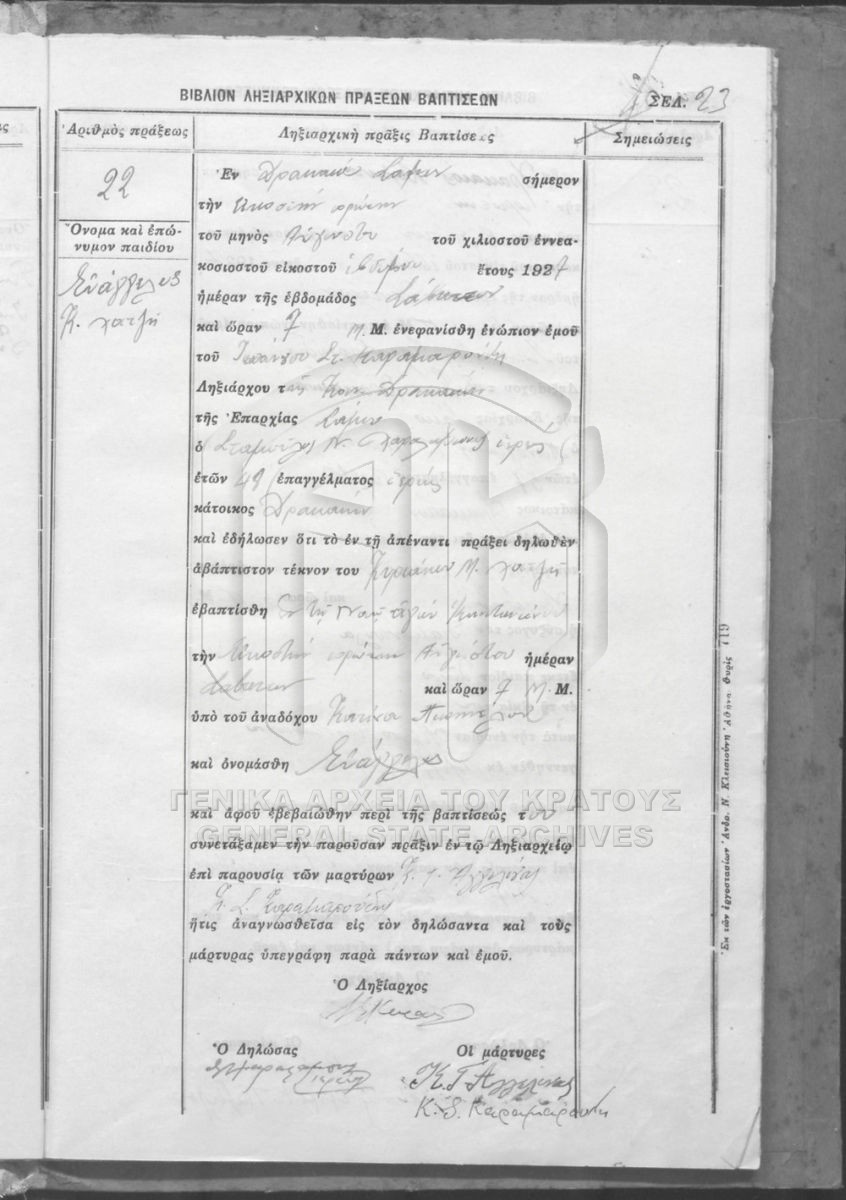 ΒΙΒΛΙΟΝ ΛΗΞΙΑΡΧΙΚΩΝ ΠΡΑΞΕΩΝ ΒΑΠΤΙΣΕΩΝ
ΣΕΛ. 23
Ἀριθμὸς πράξεως
Ληξιαρχικὴ πρᾶξις Βαπτίσεως
Σημειώσεις
22
Ὄνομα καὶ ἐπώ-
νυμον παιδίου
Εὐάγγελος
Κ. Χατζῆ
Ἐν Δρακαίοι Σάμου σήμερον
τὴν εἰκοστὴν πρώτην
τοῦ μηνὸς Αὐγούστου τοῦ χιλιοστοῦ ἐννεα-
κοσιοστοῦ εἰκοστοῦ ἑβδόμου ἔτους 1927
ἡμέραν τῆς ἑβδομάδος Σάβατον
καὶ ὥραν 7 Μ. Μ. ἐνεφανίσθη ἐνώπιον ἐμοῦ
τοῦ Ἰωάννου Στ. Καραμαρούδη
Ληξιάρχου τῆς Κοιν. Δρακαίων
τῆς Ἐπαρχίας Σάμου
ὁ Σταμούλος Ν. ἱερεύς
ἐτῶν 48 ἐπαγγέλματος ἱερεύς
κάτοικος Δρακαίων
καὶ ἐδήλωσεν ὅτι τὸ ἐν τῇ ἀπέναντι πράξει δηλωθὲν
ἀβάπτιστον τέκνον του Κυριάκου Μ. Χατζῆ
ἐβαπτίσθη ἐν τῷ Ναῷ Ἁγίου Κωνσταντίνου
τὴν εἰκοστὴν πρώτην Αὐγούστου ἡμέραν
Σάβατον καὶ ὥραν 7 Μ. Μ.
ὑπὸ τοῦ ἀναδόχου
καὶ ὀνομάσθη Εὐάγγελος
ΓΕΝΙΚΑ ΑΡΧΕΙΑ ΤΟΥ ΚΡΑΤΟΥΣ
καὶ ἀφοῦ ἐβεβαιώθην περὶ τῆς βαπτίσεώς του
GENERAL STATE ARCHIVES
συνετάξαμεν τὴν παροῦσαν πρᾶξιν ἐν τῷ Ληξιαρχείῳ
ἐπὶ παρουσίᾳ τῶν μαρτύρων Κ. Γ. Ἀγγελινᾶς
Κ. Σ. Καραμαρούδης
ἥτις ἀναγνωσθεῖσα εἰς τὸν δηλώσαντα καὶ τοὺς
μάρτυρας ὑπεγράφη παρὰ πάντων καὶ ἐμοῦ.
Ὁ Ληξίαρχος
Ὁ Δηλώσας
Οἱ μάρτυρες
Κ. Γ. Ἀγγελινᾶς
Κ. Σ. Καραμαρούδη
Ἐκ τῶν ἐργοστασίων Ἀνδρ. Ν. Κλεισιούνη Ἀθῆναι Θυρὶς 119